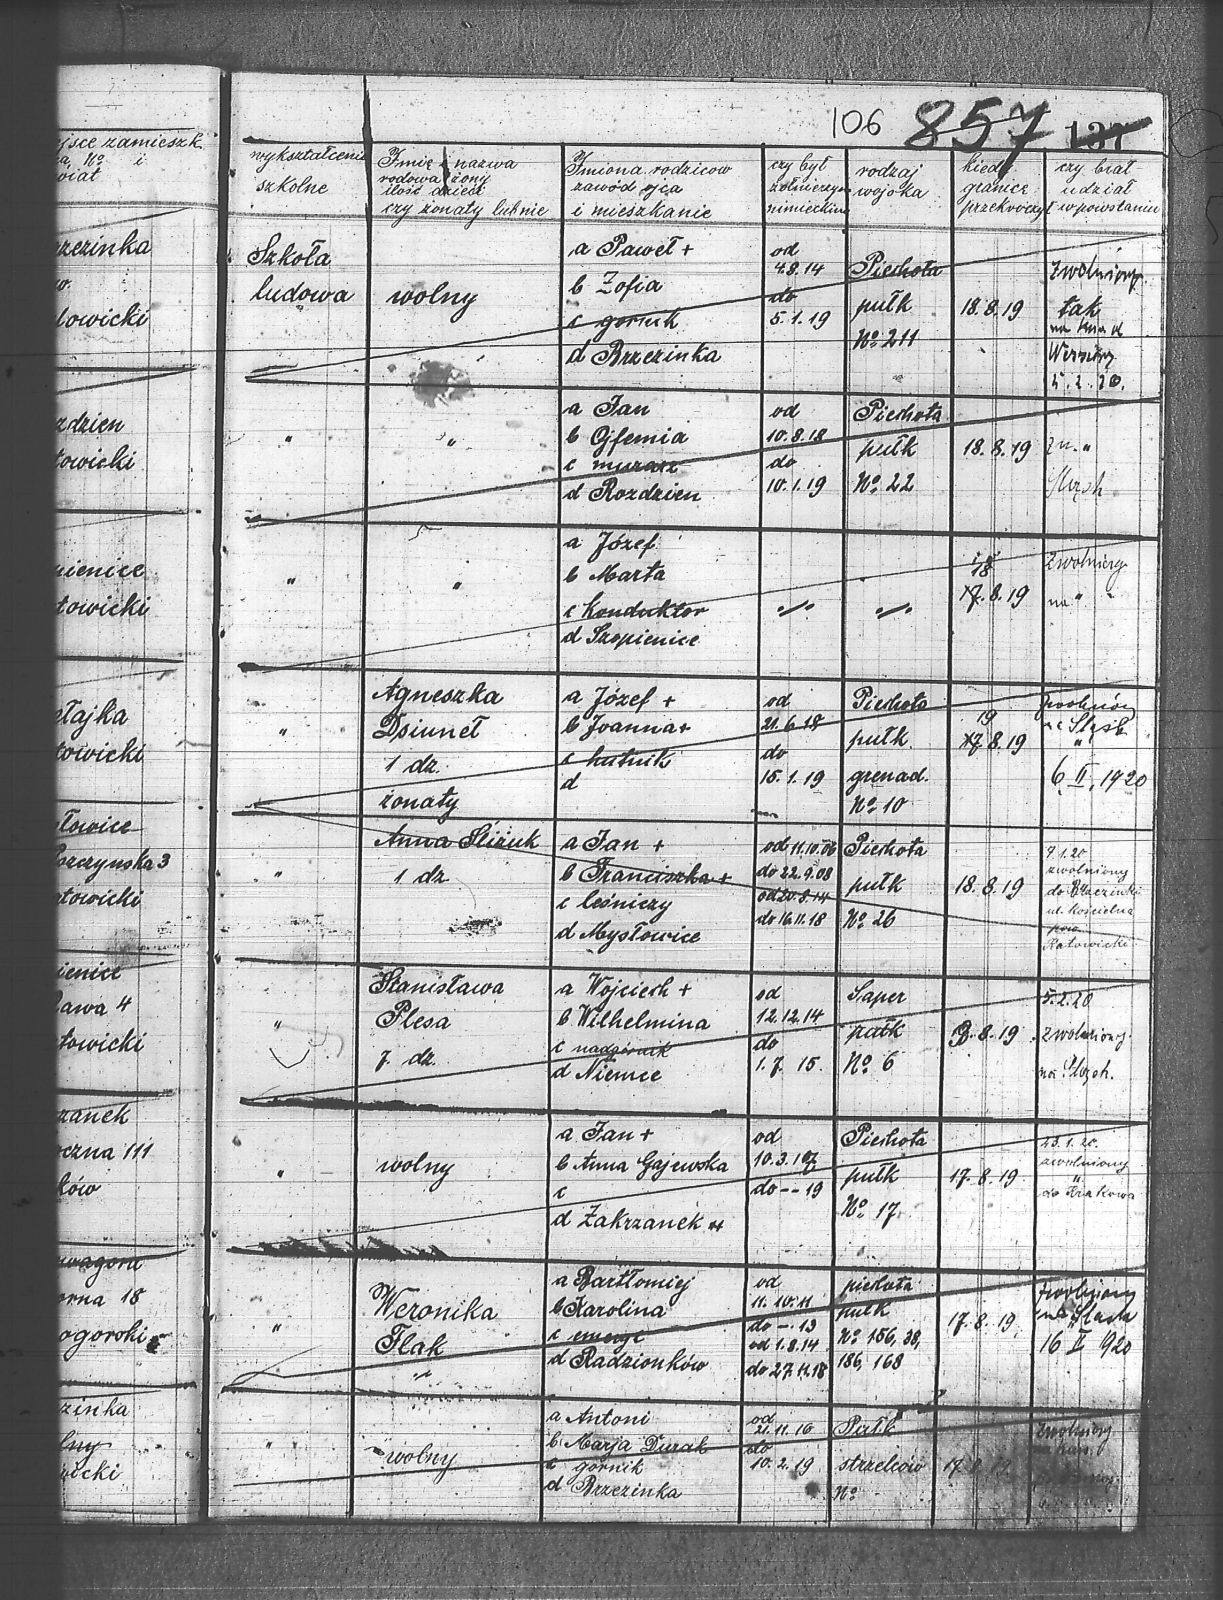 106 857 137
jsce zamieszk.
a, No i
wiat
wykształcenie
szkolne
Imię i nazwa
rodowa żony
ilość dzieci
czy żonaty lub nie
Imiona rodziców
zawód ojca
i mieszkanie
czy był
żołnierzym
nimieckim
rodzaj
wojska
kiedy
granicę
przekroczył
czy brał
udział
w powstaniu
rzezinka
owicki
Szkoła
ludowa
wolny
a Paweł +
b Zofia
c górnik
d Brzezinka
od
4.8.14
do
5.1.19
Piechota
pułk
No 211
18.8.19
zwolniony
tak
5.2.20.
zdzien
towicki
"
"
a Jan
b Ofemia
c murarz
d Rozdzien
od
10.8.18
do
10.1.19
Piechota
pułk
No 22
18.8.19
zw. "
Śląsk
pienice
towicki
"
"
a Józef
b Marta
c konduktor
d Szopienice
-//-
-//-
18
17.8.19
zwolniony
na " "
etajka
towicki
"
Agneszka
Dsiunel
1 dz.
żonaty
a Józef +
b Joanna +
c hutnik
d
od
21.6.18
do
15.1.19
Piechota
pułk
grenad.
No 10
19
17.8.19
zwolniony
na Śląsk
"
6.II.1920
łowice
szczynska 3
towicki
"
Anna Śliżuk
1 dz
a Jan +
b Franciszka +
c leśniczy
d Mysłowice
od 11.10.06
do 22.9.08
od 20.8.14
do 16.11.18
Piechota
pułk
No 26
18.8.19
7.1.20
zwolniony
do Brzezinki
ul. Kościelna
pow.
Katowicki
ienice
ława 4
towicki
"
Stanisława
Plesa
7. dz.
a Wojciech +
b Wilhelmina
c nadgórnik
d Niemce
od
12.12.14
do
1.7.15.
Saper
pułk
No 6
8.19
5.2.20
zwolniony
na Śląsk.
zanek
oczna 111
ków
"
wolny
a Jan +
b Anna Gajewska
c
d Zakrzanek
od
10.3.17
do -- 19
Piechota
pułk
No 17.
17.8.19
23.1.20.
zwolniony
"
do Krakowa
wagóra
orna 18
ogorski
"
Weronika
Flak
"
a Bartłomiej
b Karolina
c emeryt
d Radzionków
od
11.10.11
do -.13
od 1.8.14
do 27.11.18
piechota
pułk
No 156, 38,
186, 168
17.8.19
zwolniony
na Śląsk
16 I 1920
zinka
lny
icki
"
wolny
a Antoni
b Marja Durak
c górnik
d Brzezinka
od
21.11.16
do
10.2.19
Pułk
strzelców
No
zwolniony